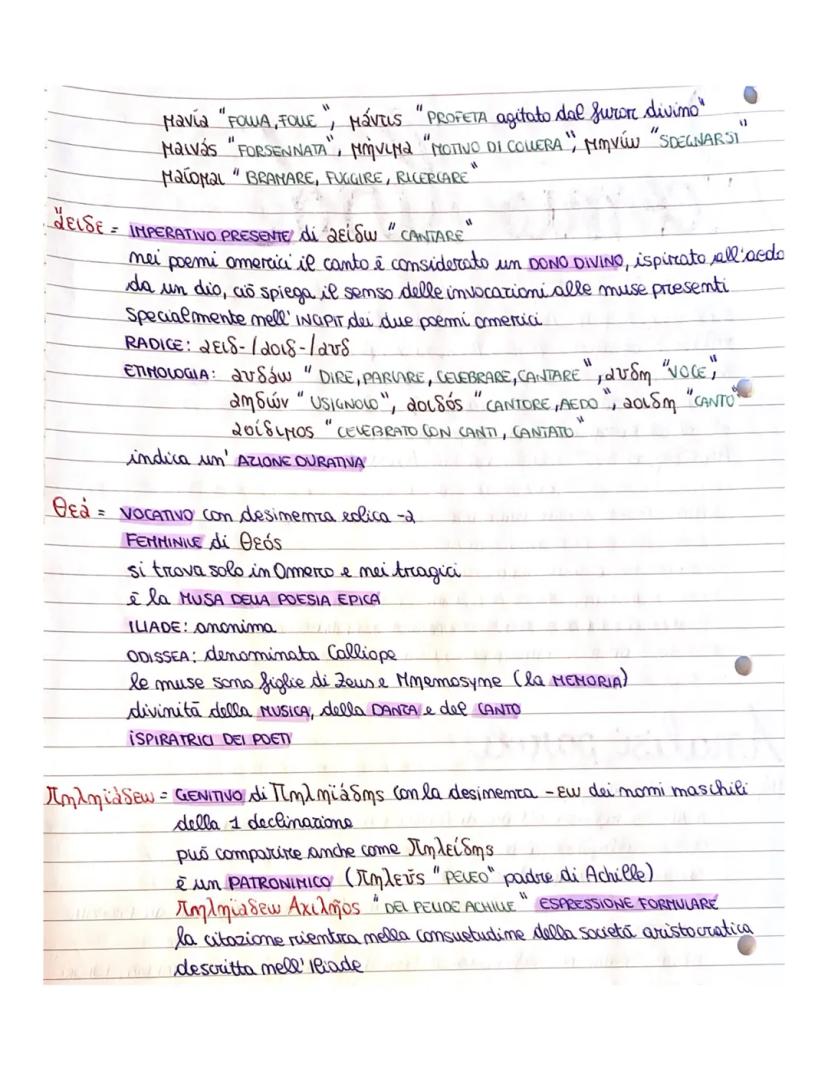 μανία "FOLLIA, FOLLE", μάντις "PROFETA agitato dal furor divino"
μαινάς "FORSENNATA", μήνιμα "MOTIVO DI COLLERA", μηνίω "SDEGNARSI"
μαίομαι "BRAMARE, FUGGIRE, RICERCARE"
ἄειδε = IMPERATIVO PRESENTE di ἀείδω "CANTARE"
nei poemi omerici il canto è considerato un DONO DIVINO, ispirato all'aedo
da un dio, ciò spiega il senso delle invocazioni alle muse presenti
specialmente nell'INCIPIT dei due poemi omerici
RADICE: αειδ-/αοιδ-/αυδ
ETIMOLOGIA: αυδάω "DIRE, PARLARE, CELEBRARE, CANTARE", αυδη "VOCE",
αηδών "USIGNOLO", αοιδός "CANTORE, AEDO", αοιδη "CANTO"
αοίδιμος "CELEBRATO CON CANTI, CANTATO"
indica un'AZIONE DURATIVA
θεά = VOCATIVO con desinenza eolica -α
FEMMINILE di θεός
si trova solo in Omero e nei tragici
è la MUSA DELLA POESIA EPICA
ILIADE: anonima
ODISSEA: denominata Calliope
le muse sono figlie di Zeus e Mnemosyne (la MEMORIA)
divinità della MUSICA, della DANZA e del CANTO
ISPIRATRICI DEI POETI
Πηληϊάδεω = GENITIVO di Πηληϊάδης con la desinenza -εω dei nomi maschili
della 1 declinazione
può comparire anche come Πηλείδης
è un PATRONIMICO (Πηλεύς "PELEO" padre di Achille)
Πηληϊάδεω Αχιλῆος "DEL PELIDE ACHILLE" ESPRESSIONE FORMULARE
la citazione rientra nella consuetudine della società aristocratica
descritta nell'Iliade